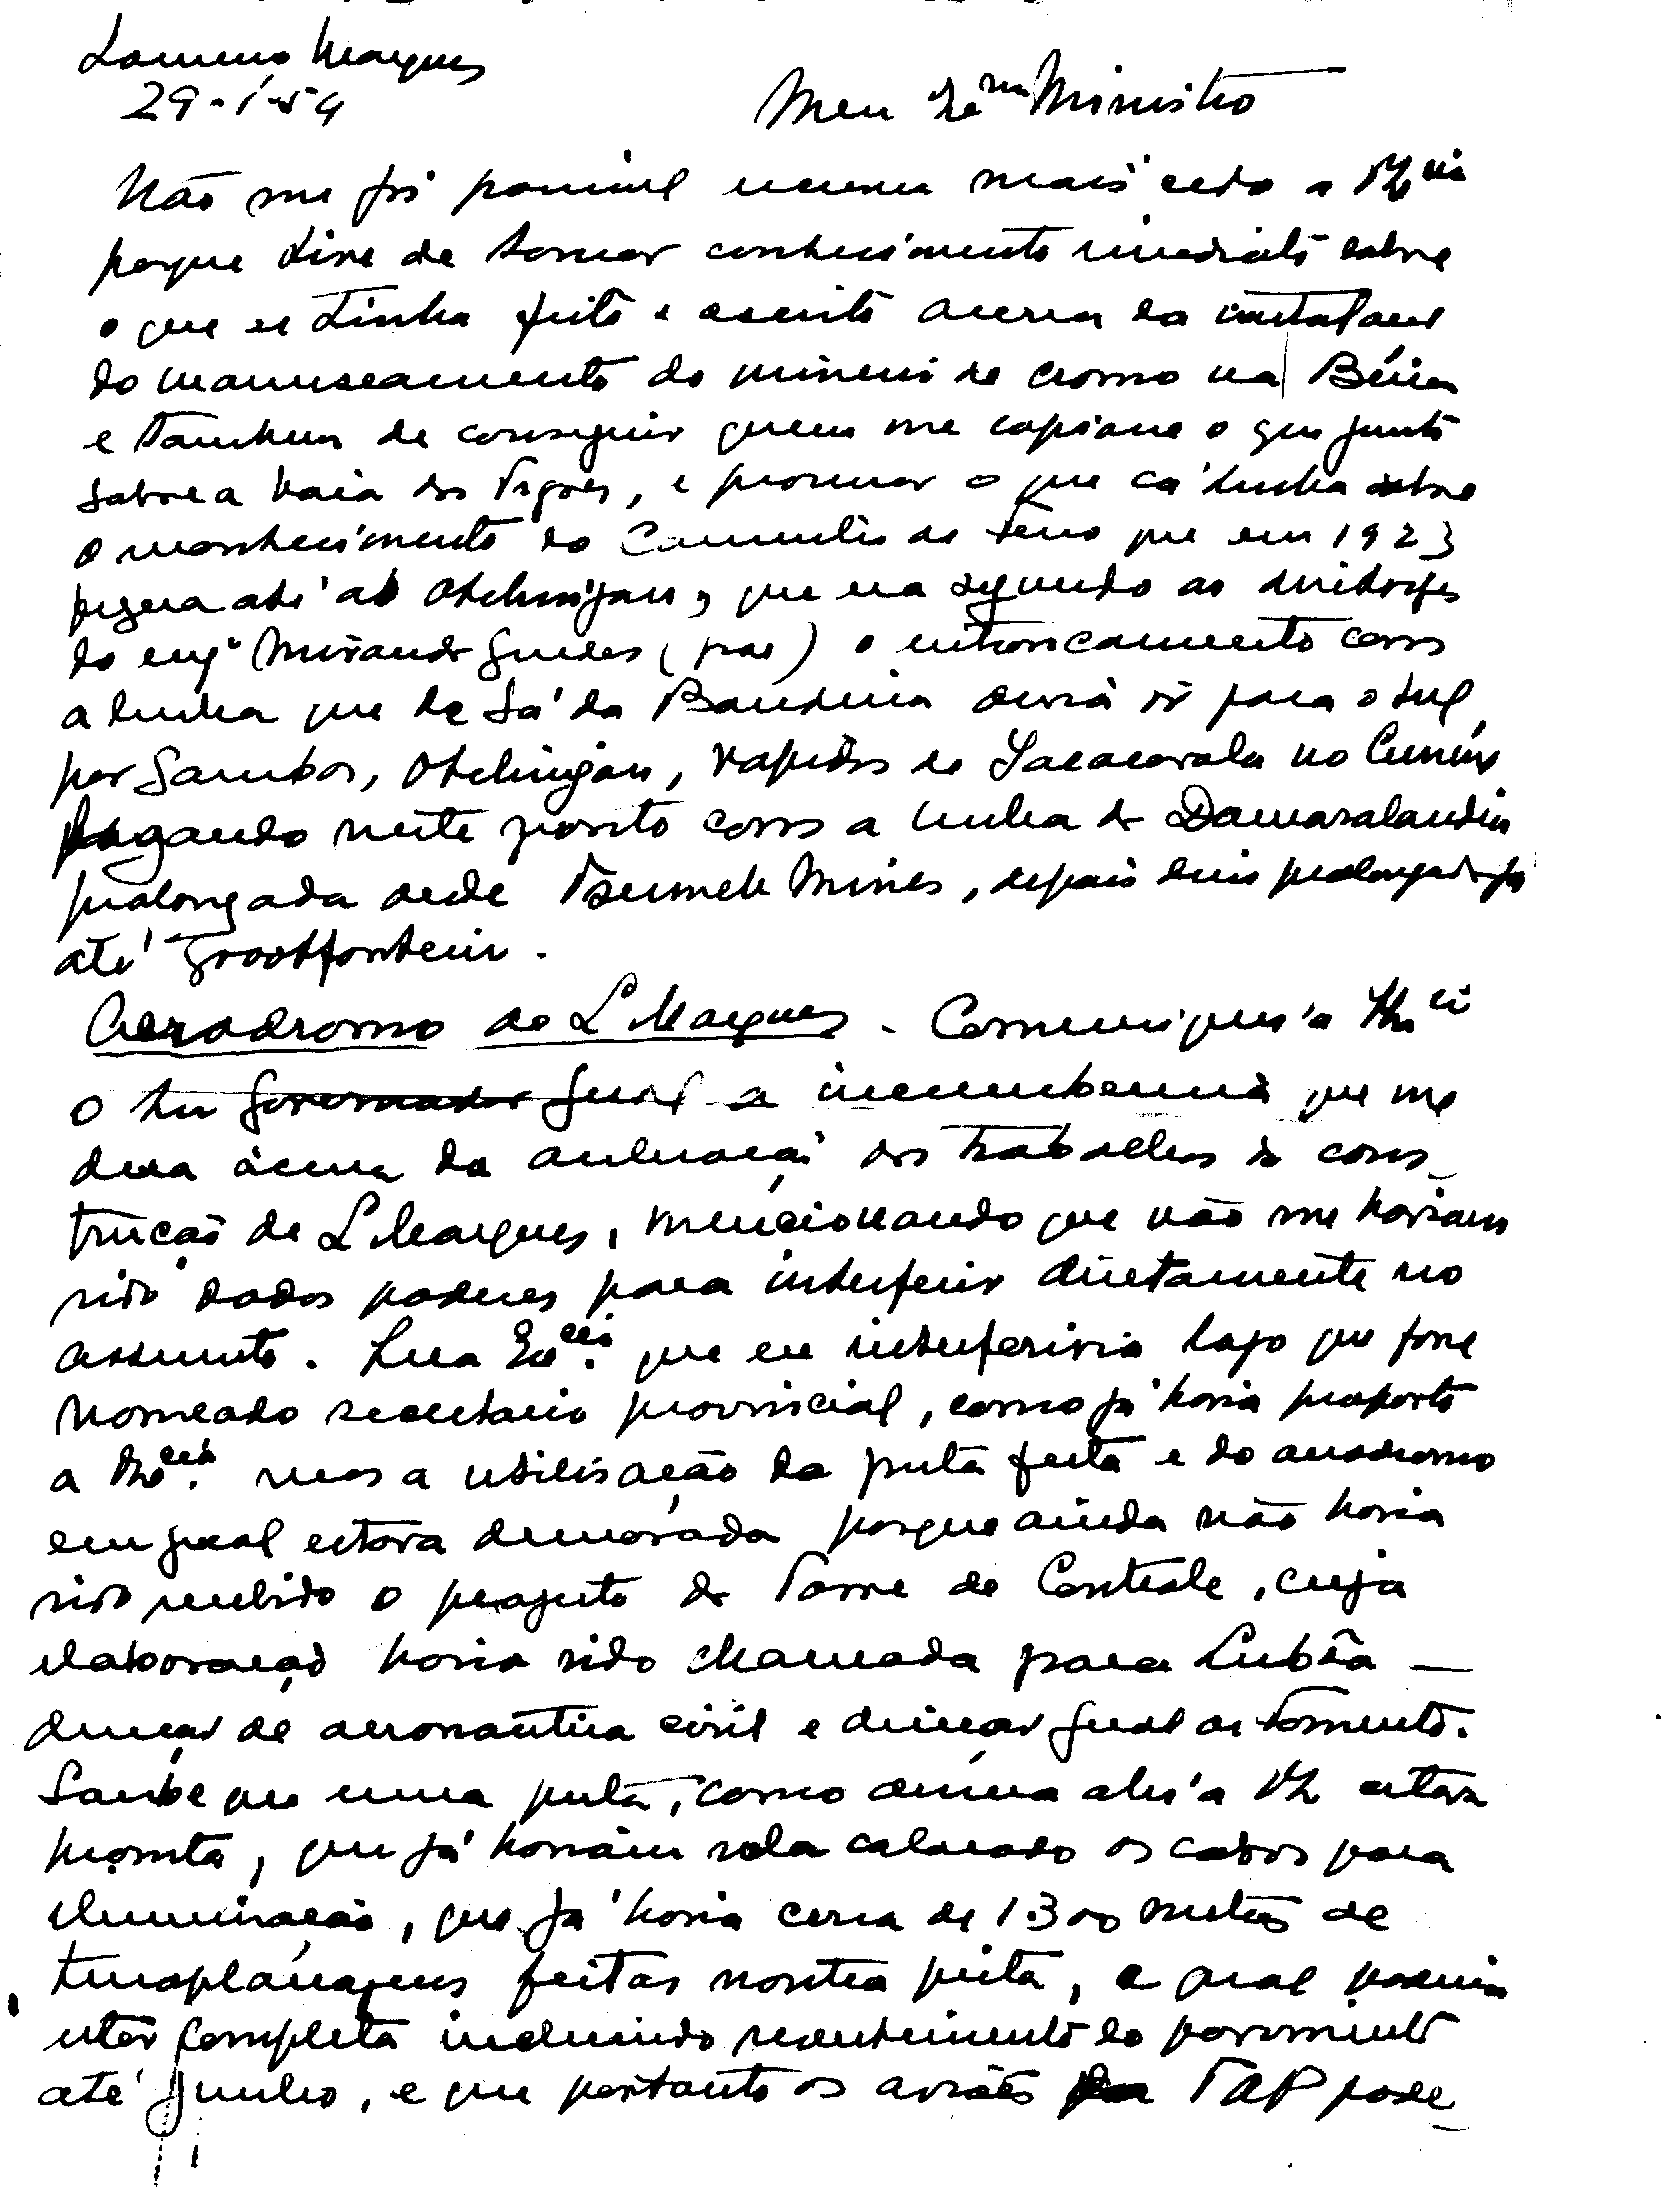 Lourenço Marques
29-1-54
Meu Exmo Ministro
Não me foi possivel escrever mais cedo a V. Excia
porque tive de tomar conhecimento imediato sobre
o que se tinha feito e escrito acerca da instalação
do manuseamento do minerio de cromo na Beira
e tambem de conseguir quem me copiasse o que junto
sobre a baia dos Tigres, e procurar o que cá tinha sobre
o reconhecimento do Caminho de ferro que em 1923
fizera até ao Otchinjau, que era segundo as directrizes
do engº Miranda Guedes (pae) o entroncamento com
a linha que de Sá da Bandeira devia ir para o sul
por Gambos, Otchinjau, rapidos de no Cunene
ligando neste ponto com a linha da Damaralandia
prolongada desde Tsumeb Mines, depois prolongada
até Grootfontein.
Aerodromo de L. Marques. Comuniquei a Exa
o Sr. Governador Geral a incumbencia que me
dera ácerca da aceleração dos trabalhos de cons-
trução de L. Marques, mencionando que não me haviam
sido dados poderes para interferir diretamente no
assunto. Sua Excia. que eu interferiria logo que fosse
nomeado secretario provincial, como já havia proposto
a V. Excia. mas a utilisação da pista feita e do aerodromo
em geral estava demorada porque ainda não havia
sido recebido o projecto da Torre de Controle, cuja
elaboração havia sido chamada para Lisbôa —
direcção de aeronautica civil e direcção geral de fomento.
Soube que uma pista, como dissera ahi a V. Ex estava
pronta, que já haviam sido colocado os cabos para
iluminação, que já havia cerca de 1.300 metros de
terraplanagens feitas noutra pista, a qual poderia
estar completa incluindo revestimento do pavimento
até Junho, e que portanto os aviões da TAP pode-